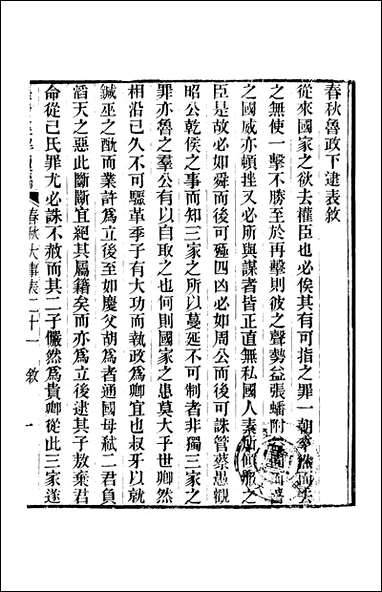 春秋魯政下逮表敘
從來國家之欲去權臣也必俟其有可指之罪一朝然而去
之無使一擊不勝至於再擊則彼之聲勢益張蟠附而吾
之國威亦頓挫又必所與謀者皆正直無私國人素所傾服之
臣是故必如舜而後可殛四凶必如周公而後可誅管蔡愚觀
昭公乾侯之事而知三家之所以蔓延不可制者非獨三家之
罪亦魯之羣公有以自取之也何則國家之患莫大乎世卿然
相沿已久不可驟革季子有大功而執政為卿宜也叔牙以就
鍼巫之酖而業許為立後至如慶父胡為者通國母弒二君負
滔天之惡此斷斷宜絕其屬籍矣而亦為立後逮其子敖棄君
命從己氏罪尤必誅不赦而其二子儼然為貴卿從此三家遂
春秋大事表二十一 敘 一